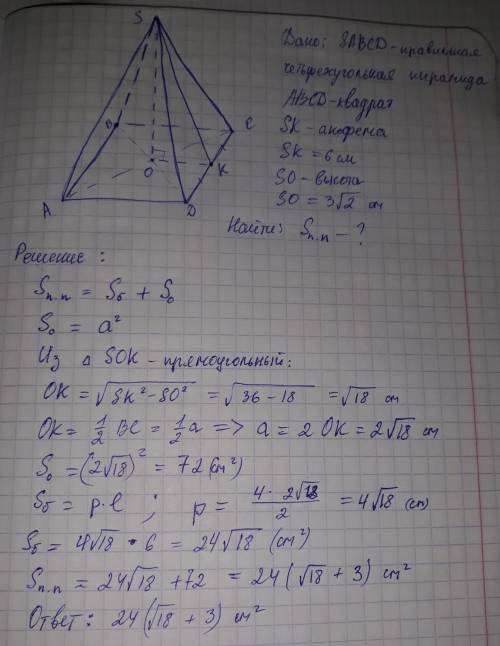 S
Дано: SABCD - правильная
четырехугольная пирамида
ABCD - квадрат
SK - апофема
SK = 6 см
SO - высота
SO = 3√2 см
Найти: Sп.п - ?
B
C
O
K
A
D
Решение:
Sп.п = Sб + So
So = a²
Из △ SOK - прямоугольный:
OK = √(SK² - SO²) = √(36 - 18) = √18 см
OK = 1/2 BC = 1/2 a => a = 2 OK = 2√18 см
So = (2√18)² = 72 (см²)
Sб = p·l ; p = (4 · 2√18)/2 = 4√18 (см)
Sб = 4√18 · 6 = 24√18 (см²)
Sп.п = 24√18 + 72 = 24(√18 + 3) см²
Ответ: 24(√18 + 3) см²